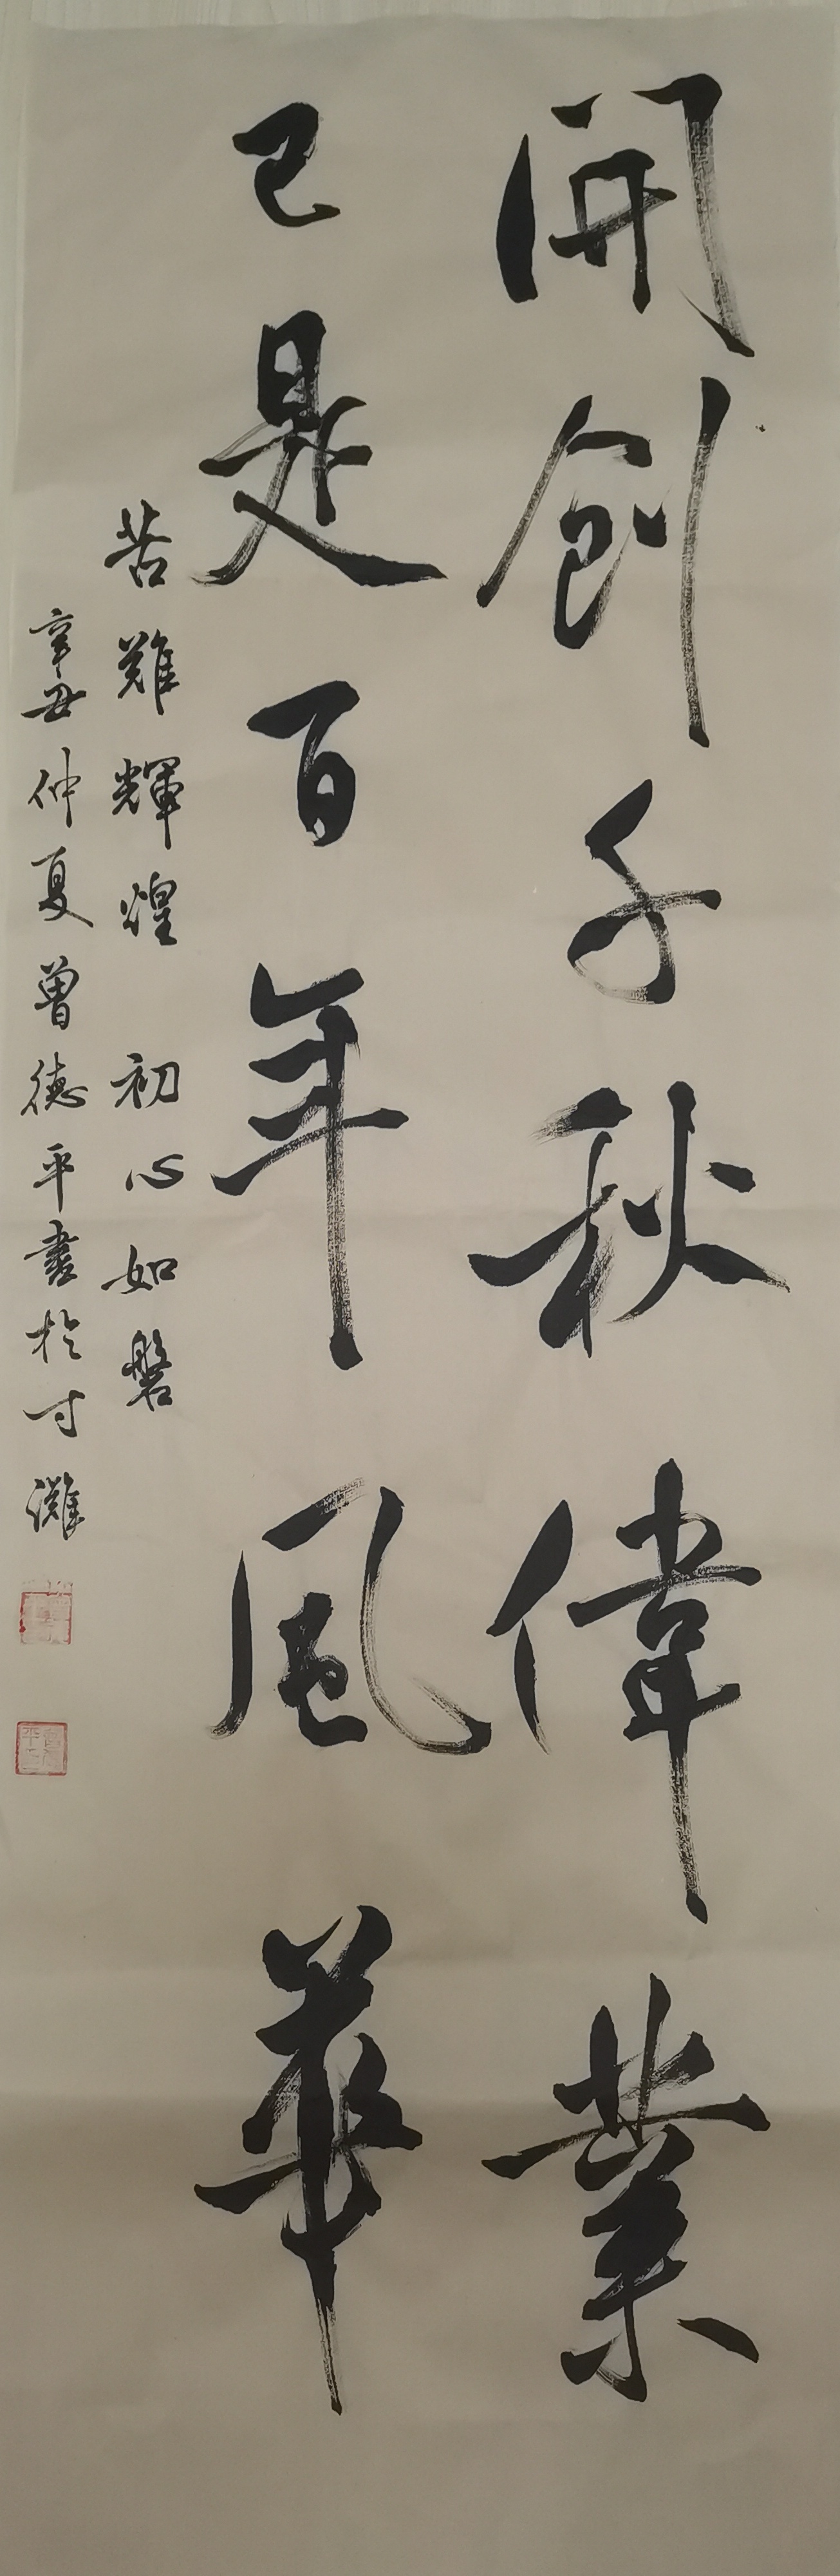 開創千秋偉業
已是百年風華
苦難輝煌 初心如磐
辛丑仲夏曾德平書於寸灘